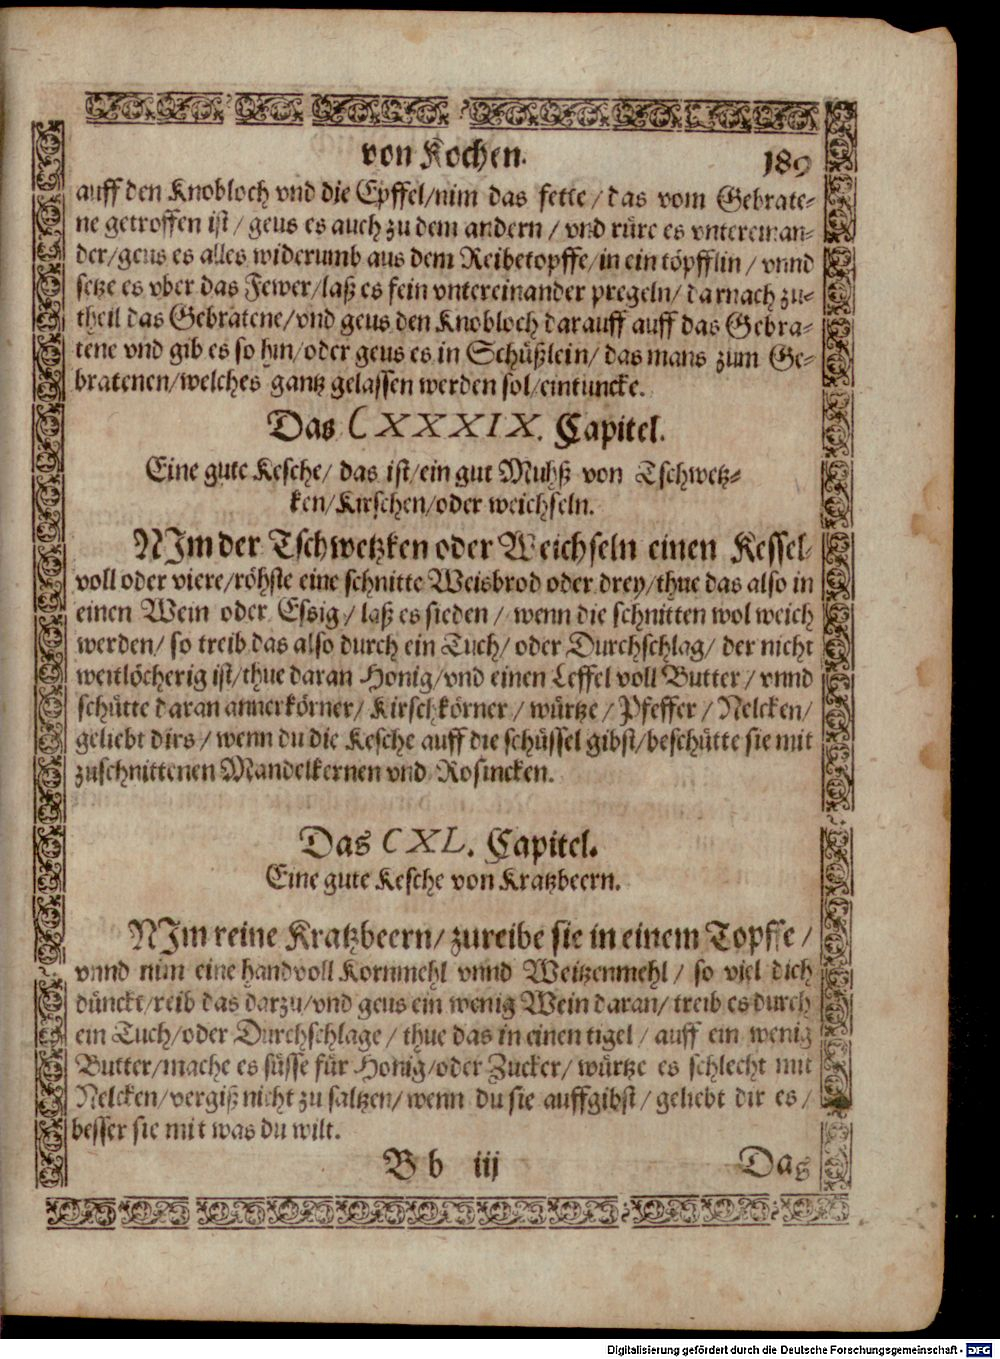 von Kochen. 189
auff den Knobloch vnd die Epffel/nim das fette/das vom Gebrate-
ne getroffen ist/geus es auch zu dem andern/vnd rüre es vntereinan-
der/geus es alles widerumb aus dem Reibetopffe/in ein töpfflin/vnnd
setze es vber das Fewer/laß es fein vntereinander pregeln/darnach zu-
theil das Gebratene/vnd geus den Knobloch darauff auff das Gebra-
tene vnd gib es so hin/oder geus es in Schüßlein/das mans zum Ge-
bratenen/welches gantz gelassen werden sol/eintuncke.
Das CXXXIX. Capitel.
Eine gute Kesche/das ist/ein gut Muhß von Tschwetz-
ken/Kirschen/oder weichseln.
NIm der Tschwetzken oder Weichseln einen Kessel-
voll oder viere/röhste eine schnitte Weisbrod oder drey/thue das also in
einen Wein oder Essig/laß es sieden/wenn die schnitten wol weich
werden/so treib das also durch ein Tuch/oder Durchschlag/der nicht
weitlöcherig ist/thue daran Honig/vnd einen Leffel voll Butter/vnnd
schütte daran annerkörner/Kirschkörner/würtze/Pfeffer/Nelcken/
geliebt dirs/wenn du die Kesche auff die schüssel gibst/beschütte sie mit
zuschnittenen Mandelkernen vnd Rosincken.
Das CXL. Capitel.
Eine gute Kesche von Kratzbeern.
NIm reine Kratzbeern/zureibe sie in einem Topffe/
vnnd nim eine handvoll Kornmehl vnnd Weitzenmehl/so viel dich
dünckt/reib das darzu/vnd geus ein wenig Wein daran/treib es durch
ein Tuch/oder Durchschlage/thue das in einen tigel/auff ein wenig
Butter/mache es süsse für Honig/oder Zucker/würtze es schlecht mit
Nelcken/vergiß nicht zu saltzen/wenn du sie auffgibst/geliebt dir es/
besser sie mit was du wilt.
B b iij Das
Digitalisierung gefördert durch die Deutsche Forschungsgemeinschaft - DFG